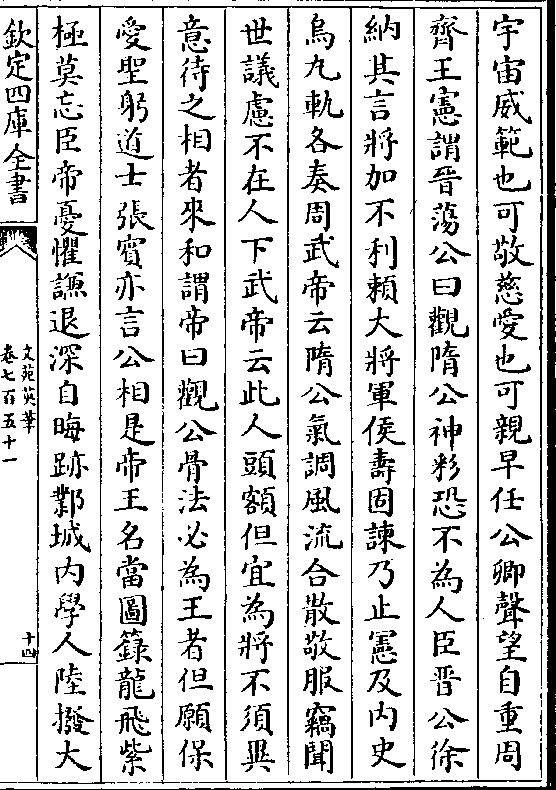 宇宙威範也可敬慈愛也可親早任公卿聲望自重周
齊王憲謂晉蕩公曰觀隋公神彩恐不為人臣晉公徐
納其言將加不利賴大將軍侯壽固諫乃止憲及内史
烏九軌各奏周武帝云隋公氣調風流合散敬服竊聞
世議慮不在人下武帝云此人頭額但宜為將不須異
意待之相者來和謂帝曰觀公骨法必為王者但願保
愛聖躬道士張賓亦言公相是帝王名當圖籙龍飛紫
極莫忘臣帝憂懼謙退深自晦跡鄴城内學人陸撥大
欽定四庫全書
文苑英華
卷七百五十一
十四